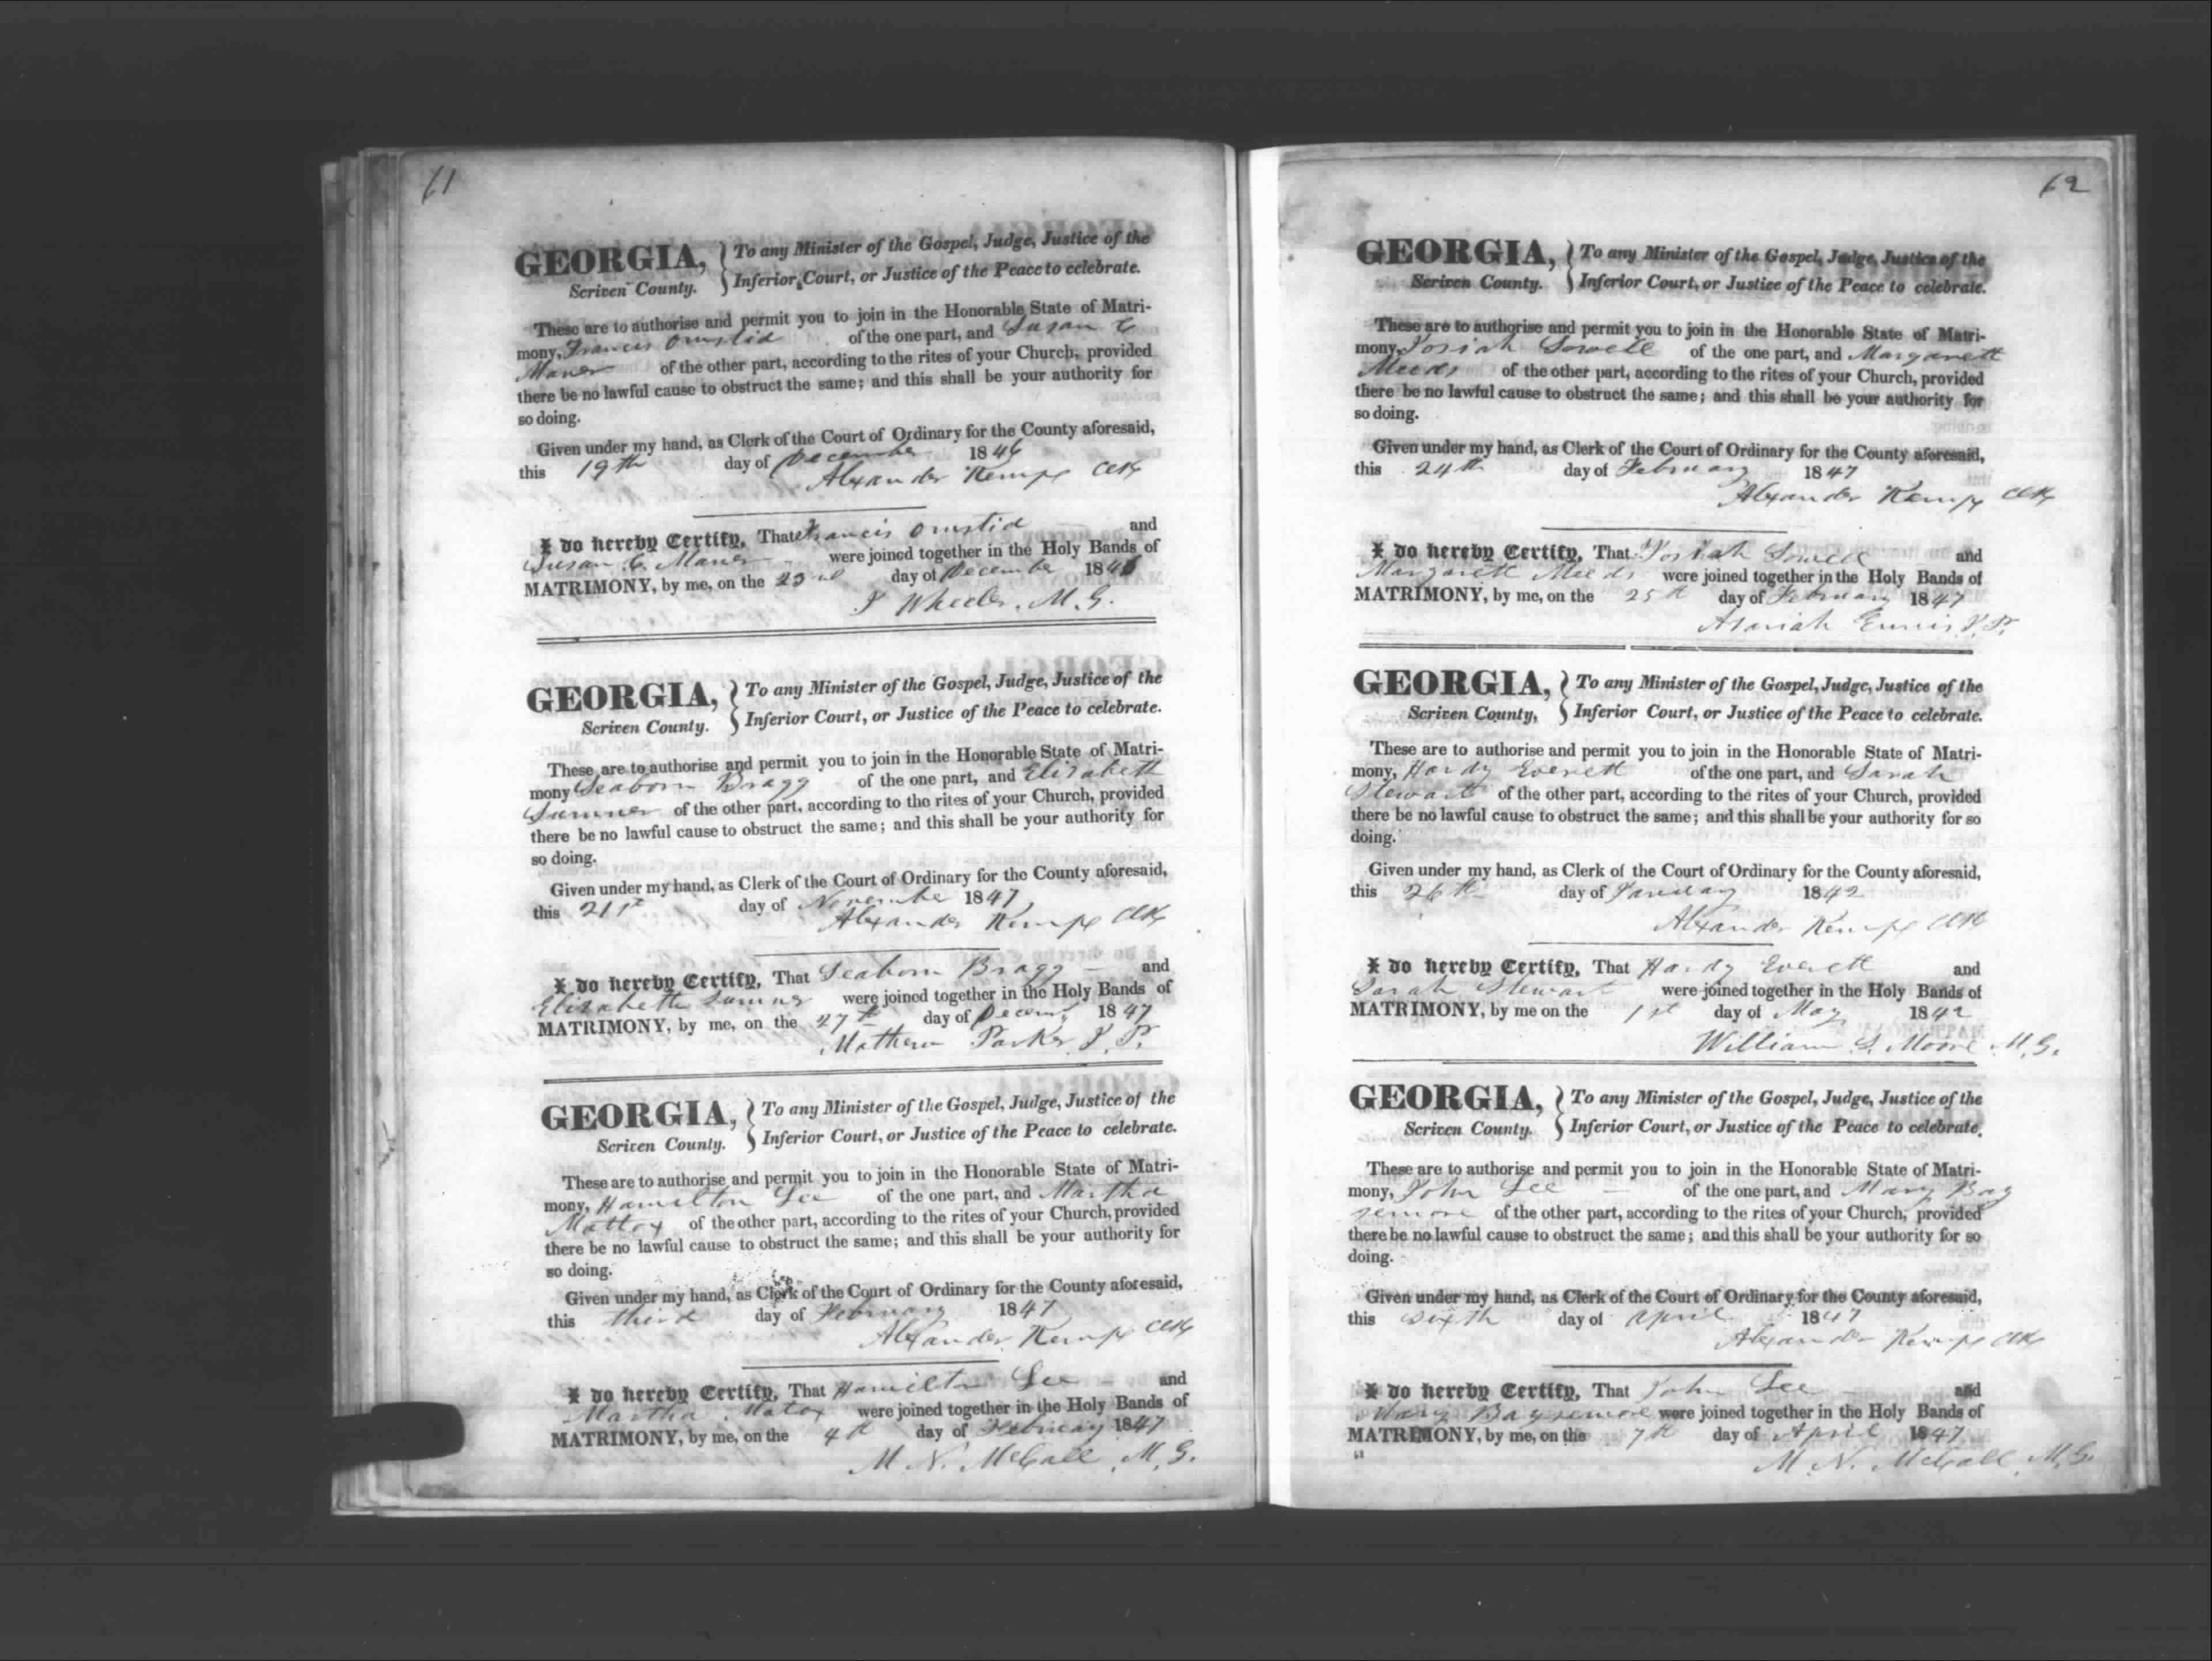 61
GEORGIA, } To any Minister of the Gospel, Judge, Justice of the
Scriven County. } Inferior Court, or Justice of the Peace to celebrate.
These are to authorise and permit you to join in the Honorable State of Matri-
mony, Francis Omstid of the one part, and Susan C
Maner of the other part, according to the rites of your Church, provided
there be no lawful cause to obstruct the same; and this shall be your authority for
so doing.
Given under my hand, as Clerk of the Court of Ordinary for the County aforesaid,
this 19th day of December 1846
Alexander Kemp Clk
I do hereby Certify, That Francis Omstid and
Susan C. Maner were joined together in the Holy Bands of
MATRIMONY, by me, on the 23rd day of December 1846
J Wheeler, M.G.
GEORGIA, } To any Minister of the Gospel, Judge, Justice of the
Scriven County. } Inferior Court, or Justice of the Peace to celebrate.
These are to authorise and permit you to join in the Honorable State of Matri-
mony Seaborn Bragg of the one part, and Elizabeth
Sumner of the other part, according to the rites of your Church, provided
there be no lawful cause to obstruct the same; and this shall be your authority for
so doing.
Given under my hand, as Clerk of the Court of Ordinary for the County aforesaid,
this 21st day of November 1847
Alexander Kemp Clk
I do hereby Certify, That Seaborn Bragg and
Elizabeth Sumner were joined together in the Holy Bands of
MATRIMONY, by me, on the 27th day of Decem 1847
Mathew Parker J.P.
GEORGIA, } To any Minister of the Gospel, Judge, Justice of the
Scriven County. } Inferior Court, or Justice of the Peace to celebrate.
These are to authorise and permit you to join in the Honorable State of Matri-
mony, Hamilton Lee of the one part, and Martha
Mattox of the other part, according to the rites of your Church, provided
there be no lawful cause to obstruct the same; and this shall be your authority for
so doing.
Given under my hand, as Clerk of the Court of Ordinary for the County aforesaid,
this third day of February 1847
Alexander Kemp Clk
I do hereby Certify, That Hamilton Lee and
Martha Matox were joined together in the Holy Bands of
MATRIMONY, by me, on the 4th day of February 1847
M N. McCall, M.G.
62
GEORGIA, } To any Minister of the Gospel, Judge, Justice of the
Scriven County. } Inferior Court, or Justice of the Peace to celebrate.
These are to authorise and permit you to join in the Honorable State of Matri-
mony, Josiah Sowell of the one part, and Margarett
Meeds of the other part, according to the rites of your Church, provided
there be no lawful cause to obstruct the same; and this shall be your authority for
so doing.
Given under my hand, as Clerk of the Court of Ordinary for the County aforesaid,
this 24th day of February 1847
Alexander Kemp Clk
I do hereby Certify, That Josiah Sowell and
Margarett Meeds were joined together in the Holy Bands of
MATRIMONY, by me, on the 25th day of February 1847
Azariah Ennis J.P.
GEORGIA, } To any Minister of the Gospel, Judge, Justice of the
Scriven County, } Inferior Court, or Justice of the Peace to celebrate.
These are to authorise and permit you to join in the Honorable State of Matri-
mony, Hardy Everett of the one part, and Sarah
Stewart of the other part, according to the rites of your Church, provided
there be no lawful cause to obstruct the same; and this shall be your authority for so
doing.
Given under my hand, as Clerk of the Court of Ordinary for the County aforesaid,
this 26th day of January 1842
Alexander Kemp Clk
I do hereby Certify, That Hardy Everett and
Sarah Stewart were joined together in the Holy Bands of
MATRIMONY, by me on the 1st day of May 1842
William S. Moore M.G.
GEORGIA, } To any Minister of the Gospel, Judge, Justice of the
Scriven County. } Inferior Court, or Justice of the Peace to celebrate.
These are to authorise and permit you to join in the Honorable State of Matri-
mony, John Lee of the one part, and Mary Bay
semore of the other part, according to the rites of your Church, provided
there be no lawful cause to obstruct the same; and this shall be your authority for so
doing.
Given under my hand, as Clerk of the Court of Ordinary for the County aforesaid,
this sixth day of April 1847
Alexander Kemp Clk
I do hereby Certify, That John Lee and
Mary Baysemore were joined together in the Holy Bands of
MATRIMONY, by me, on the 7th day of April 1847
M. N. McCall, M.G.